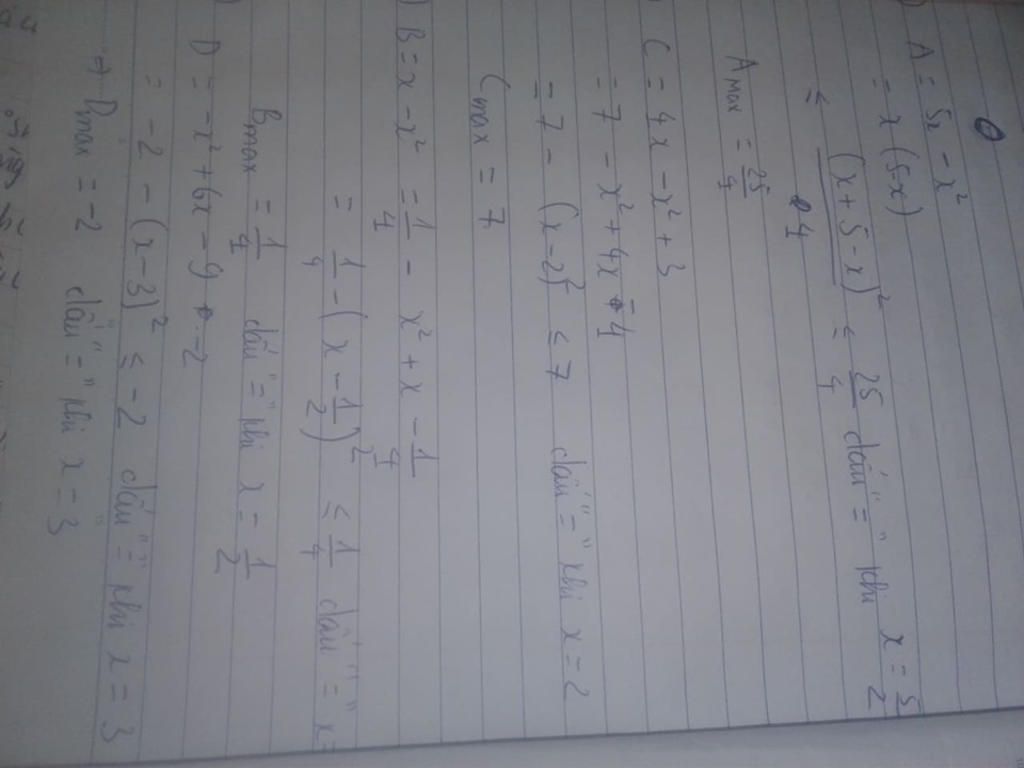 A = 5x - x²
= x (5-x)
≤ (x + 5 - x)² / 4 ≤ 25/4 dấu "=" khi x = 5/2
A max = 25/4
C = 4x - x² + 3
= 7 - x² + 4x - 4
= 7 - (x-2)² ≤ 7 dấu "=" khi x = 2
C max = 7
) B = x - x² = 1/4 - x² + x - 1/4
= 1/4 - (x - 1/2)² ≤ 1/4 dấu "=" x =
B max = 1/4 dấu "=" khi x = 1/2
) D = -x² + 6x - 9 - 2
= -2 - (x-3)² ≤ -2 dấu "=" khi x = 3
⇒ D max = -2 dấu "=" khi x = 3